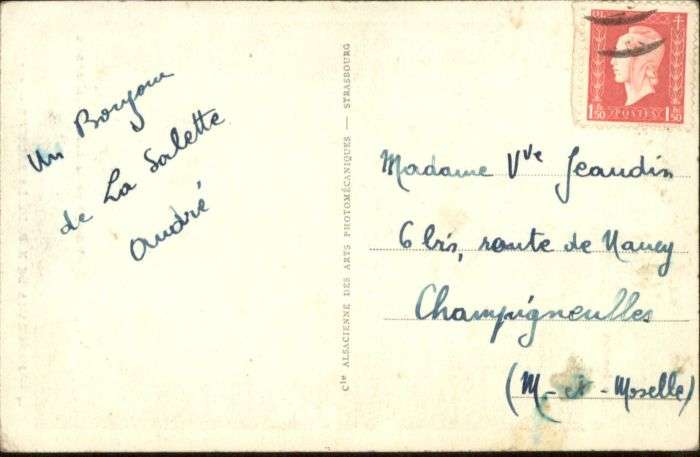 Un Bonjour
de La Salette
André
Cie ALSACIENNE DES ARTS PHOTOMÉCANIQUES — STRASBOURG
POSTES
1F50 1F50
Madame Vve Jeandin
6 bis, route de Nancy
Champigneulles
(M-et-Moselle)